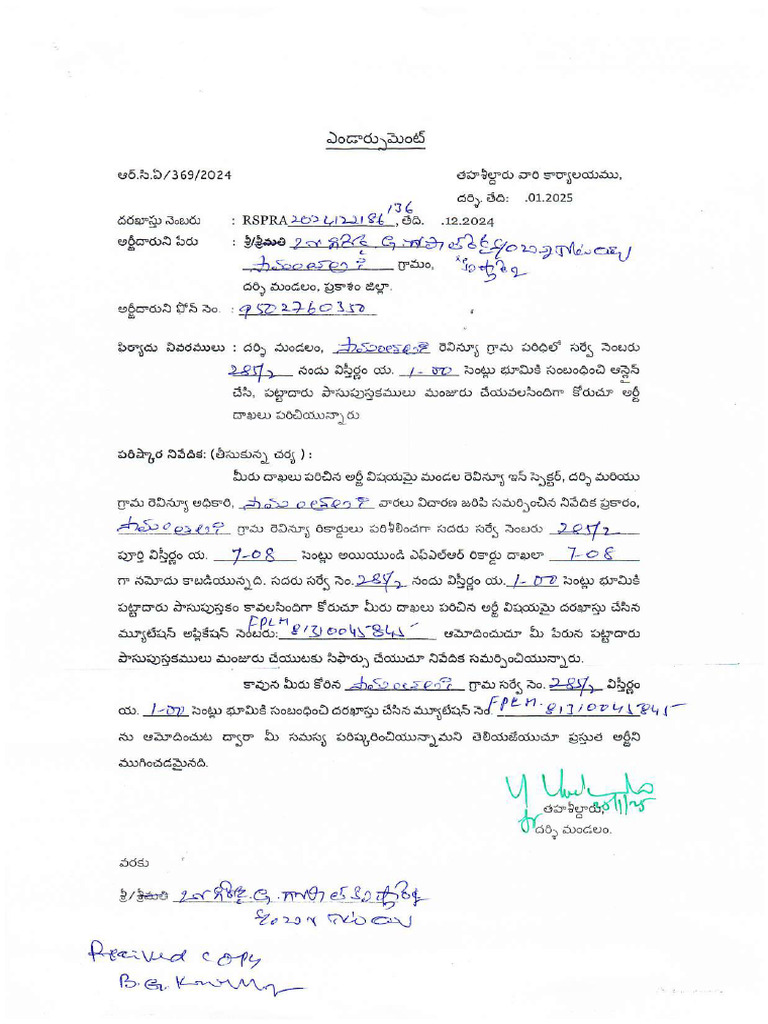 ఎండార్సుమెంట్
ఆర్.సి.ఏ/369/2024 తహశీల్దారు వారి కార్యాలయము,
దర్శి. తేది: .01.2025
దరఖాస్తు నెంబరు : RSPRA2024122186/36, తేది. .12.2024
అర్జీదారుని పేరు : శ్రీ/శ్రీమతి
గ్రామం,
దర్శి మండలం, ప్రకాశం జిల్లా.
అర్జీదారుని ఫోన్ నెం. : 9502760350
ఫిర్యాదు వివరములు : దర్శి మండలం, రెవిన్యూ గ్రామ పరిధిలో సర్వే నెంబరు
285/2 నందు విస్తీర్ణం య. 1-00 సెంట్లు భూమికి సంబంధించి ఆన్లైన్
చేసి, పట్టాదారు పాసుపుస్తకములు మంజురు చేయవలసిందిగా కోరుచూ అర్జీ
దాఖలు పరిచియున్నారు
పరిష్కార నివేదిక: (తీసుకున్న చర్య ) :
మీరు దాఖలు పరిచిన అర్జీ విషయమై మండల రెవిన్యూ ఇన్ స్పెక్టర్, దర్శి మరియు
గ్రామ రెవిన్యూ అధికారి, వారలు విచారణ జరిపి సమర్పించిన నివేదిక ప్రకారం,
గ్రామ రెవిన్యూ రికార్డులు పరిశీలించగా సదరు సర్వే నెంబరు 285/2
పూర్తి విస్తీర్ణం య. 7-08 సెంట్లు అయియుండి ఎఫ్ఎల్ఆర్ రికార్డు దాఖలా 7-08
గా నమోదు కాబడియున్నది. సదరు సర్వే నెం. 285/2 నందు విస్తీర్ణం య. 1-00 సెంట్లు భూమికి
పట్టాదారు పాసుపుస్తకం కావలసిందిగా కోరుచూ మీరు దాఖలు పరచిన అర్జీ విషయమై దరఖాస్తు చేసిన
మ్యూటేషన్ అప్లికేషన్ నెంబరు: 81310045845 ఆమోదించుచూ మీ పేరున పట్టాదారు
పాసుపుస్తకములు మంజురు చేయుటకు సిఫార్సు చేయుచూ నివేదిక సమర్పించియున్నారు.
కావున మీరు కోరిన గ్రామ సర్వే నెం. 285/2 విస్తీర్ణం
య. 1-00 సెంట్లు భూమికి సంబంధించి దరఖాస్తు చేసిన మ్యూటేషన్ నెం. 81310045845
ను ఆమోదించుట ద్వారా మీ సమస్య పరిష్కరించియున్నామని తెలియజేయుచూ ప్రస్తుత అర్జీని
ముగించడమైనది.
తహశీల్దారు,
దర్శి మండలం.
వరకు
శ్రీ/శ్రీమతి
Received copy